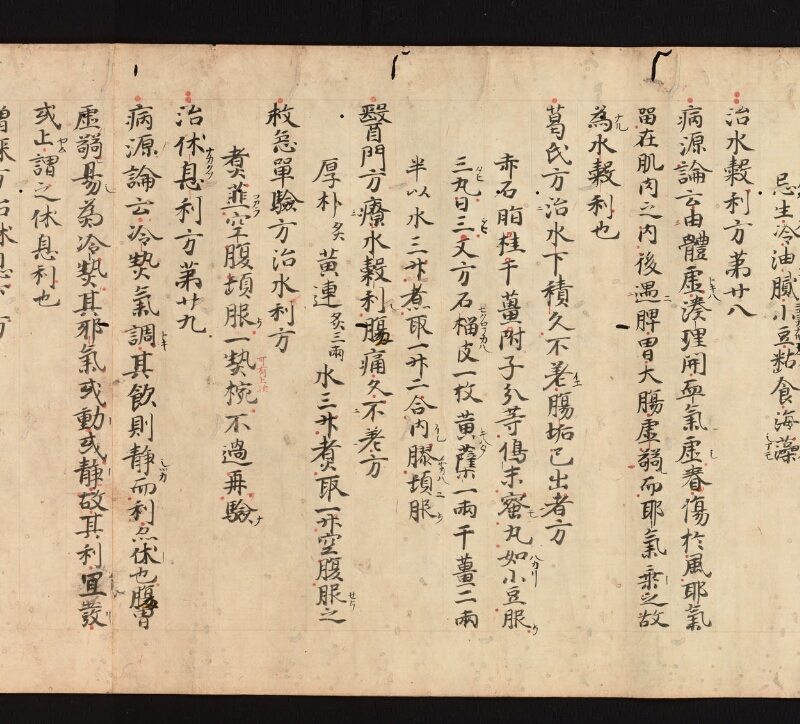 忌生冷油膩小豆黏食海藻
治水穀利方第廿八
病源論云由體虛湊理開血氣虛春傷於風耶氣
留在肌肉之內後遇脾胃大腸虛弱而耶氣乘之故
為水穀利也
葛氏方治水下積久不差腸垢已出者方
赤石脂桂干薑附子分等搗末蜜丸如小豆服
三丸日三又方石榴皮一枚黃蘗一兩干薑二兩
半以水三升煮取一升二合內膠頓服
醫門方療水穀利腸痛久不差方
厚朴炙黃連炙三兩水三升煮取一升空腹服之
救急單驗方治水利方
煮韮空腹頓服一熱椀不過再驗
治休息利方第廿九
病源論云冷熱氣調其飲則靜而利忽休也腸胃
虛弱易為冷熱其邪氣或動或靜故其利宜發
或止謂之休息利也